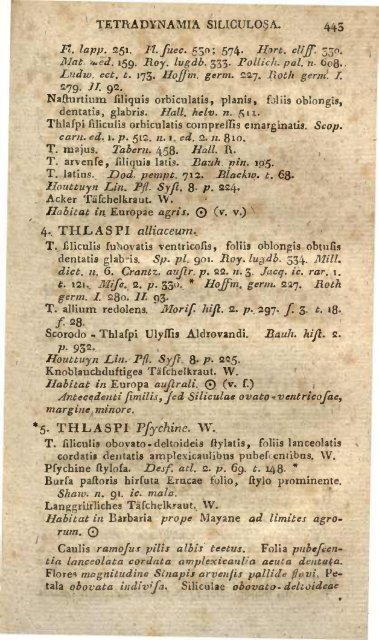 TETRADYNAMIA SILICULOSA. 443
Fl. lapp. 251. Fl. suec. 530; 574. Hort. cliff. 330.
Mat. med. 159. Roy. lugdb. 333. Pollich. pal. n. 608.
Ludw. ect. t. 173. Hoffm. germ. 227. Roth germ. I.
279. II. 92.
Nasturtium siliquis orbiculatis, planis, foliis oblongis,
dentatis, glabris. Hall. helv. n. 511.
Thlaspi siliculis orbiculatis compressis emarginatis. Scop.
carn. ed. 1. p. 512. n. 1. ed. 2. n. 810.
T. majus. Tabern. 458. Hall. R.
T. arvense, siliquis latis. Bauh. pin. 105.
T. latius. Dod. pempt. 712. Blackw. t. 68.
Houttuyn Lin. Pfl. Syst. 8. p. 224.
Acker Täschelkraut. W.
Habitat in Europae agris. ☉ (v. v.)
4. THLASPI alliaceum.
T. siliculis subovatis ventricosis, foliis oblongis obtusis
dentatis glabris. Sp. pl. 901. Roy. lugdb. 334. Mill.
dict. n. 6. Crantz. austr. p. 22. n. 3. Jacq. ic. rar. 1.
t. 121. Misc. 2. p. 330. * Hoffm. germ. 227. Roth
germ. I. 280. II. 93.
T. allium redolens. Moris. hist. 2. p. 297. s. 3. t. 18.
f. 28.
Scorodo-Thlaspi Ulyssis Aldrovandi. Bauh. hist. 2.
p. 932.
Houttuyn Lin. Pfl. Syst. 8. p. 225.
Knoblauchduftiges Täschelkraut. W.
Habitat in Europa australi. ☉ (v. s.)
Antecedenti similis, sed Siliculae ovato-ventricosae,
margine minore.
*5. THLASPI Psychine. W.
T. siliculis obovato-deltoideis stylatis, foliis lanceolatis
cordatis dentatis amplexicaulibus pubescentibus. W.
Psychine stylosa. Desf. atl. 2. p. 69. t. 148. *
Bursa pastoris hirsuta Erucae folio, stylo prominente.
Shaw. n. 91. ic. mala.
Langgriffliches Täschelkraut. W.
Habitat in Barbaria prope Mayane ad limites agro-
rum. ☉
Caulis ramosus pilis albis tectus. Folia pubescen-
tia lanceolata cordata amplexicaulia acuta dentata.
Flores magnitudine Sinapis arvensis pallide flavi. Pe-
tala obovata indivisa. Siliculae obovato-deltoideae